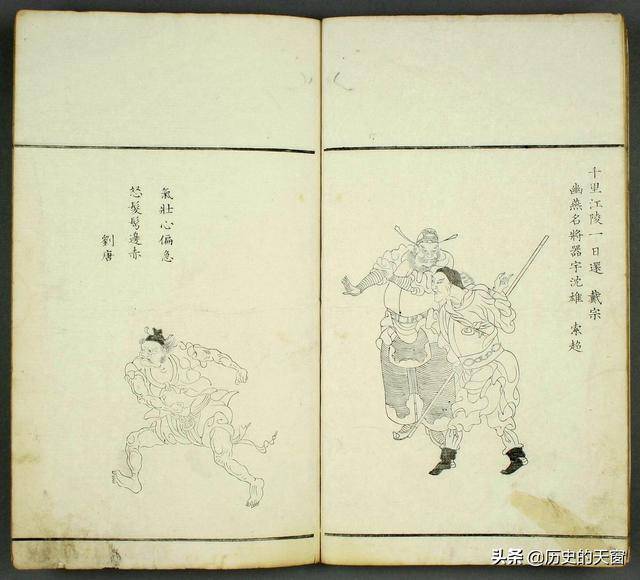 十里江陵一日還　戴宗
幽燕名將器宇沈雄　索超
氣壯心偏急
怒髮鬂邊赤
劉唐
头条 @历史的天窗